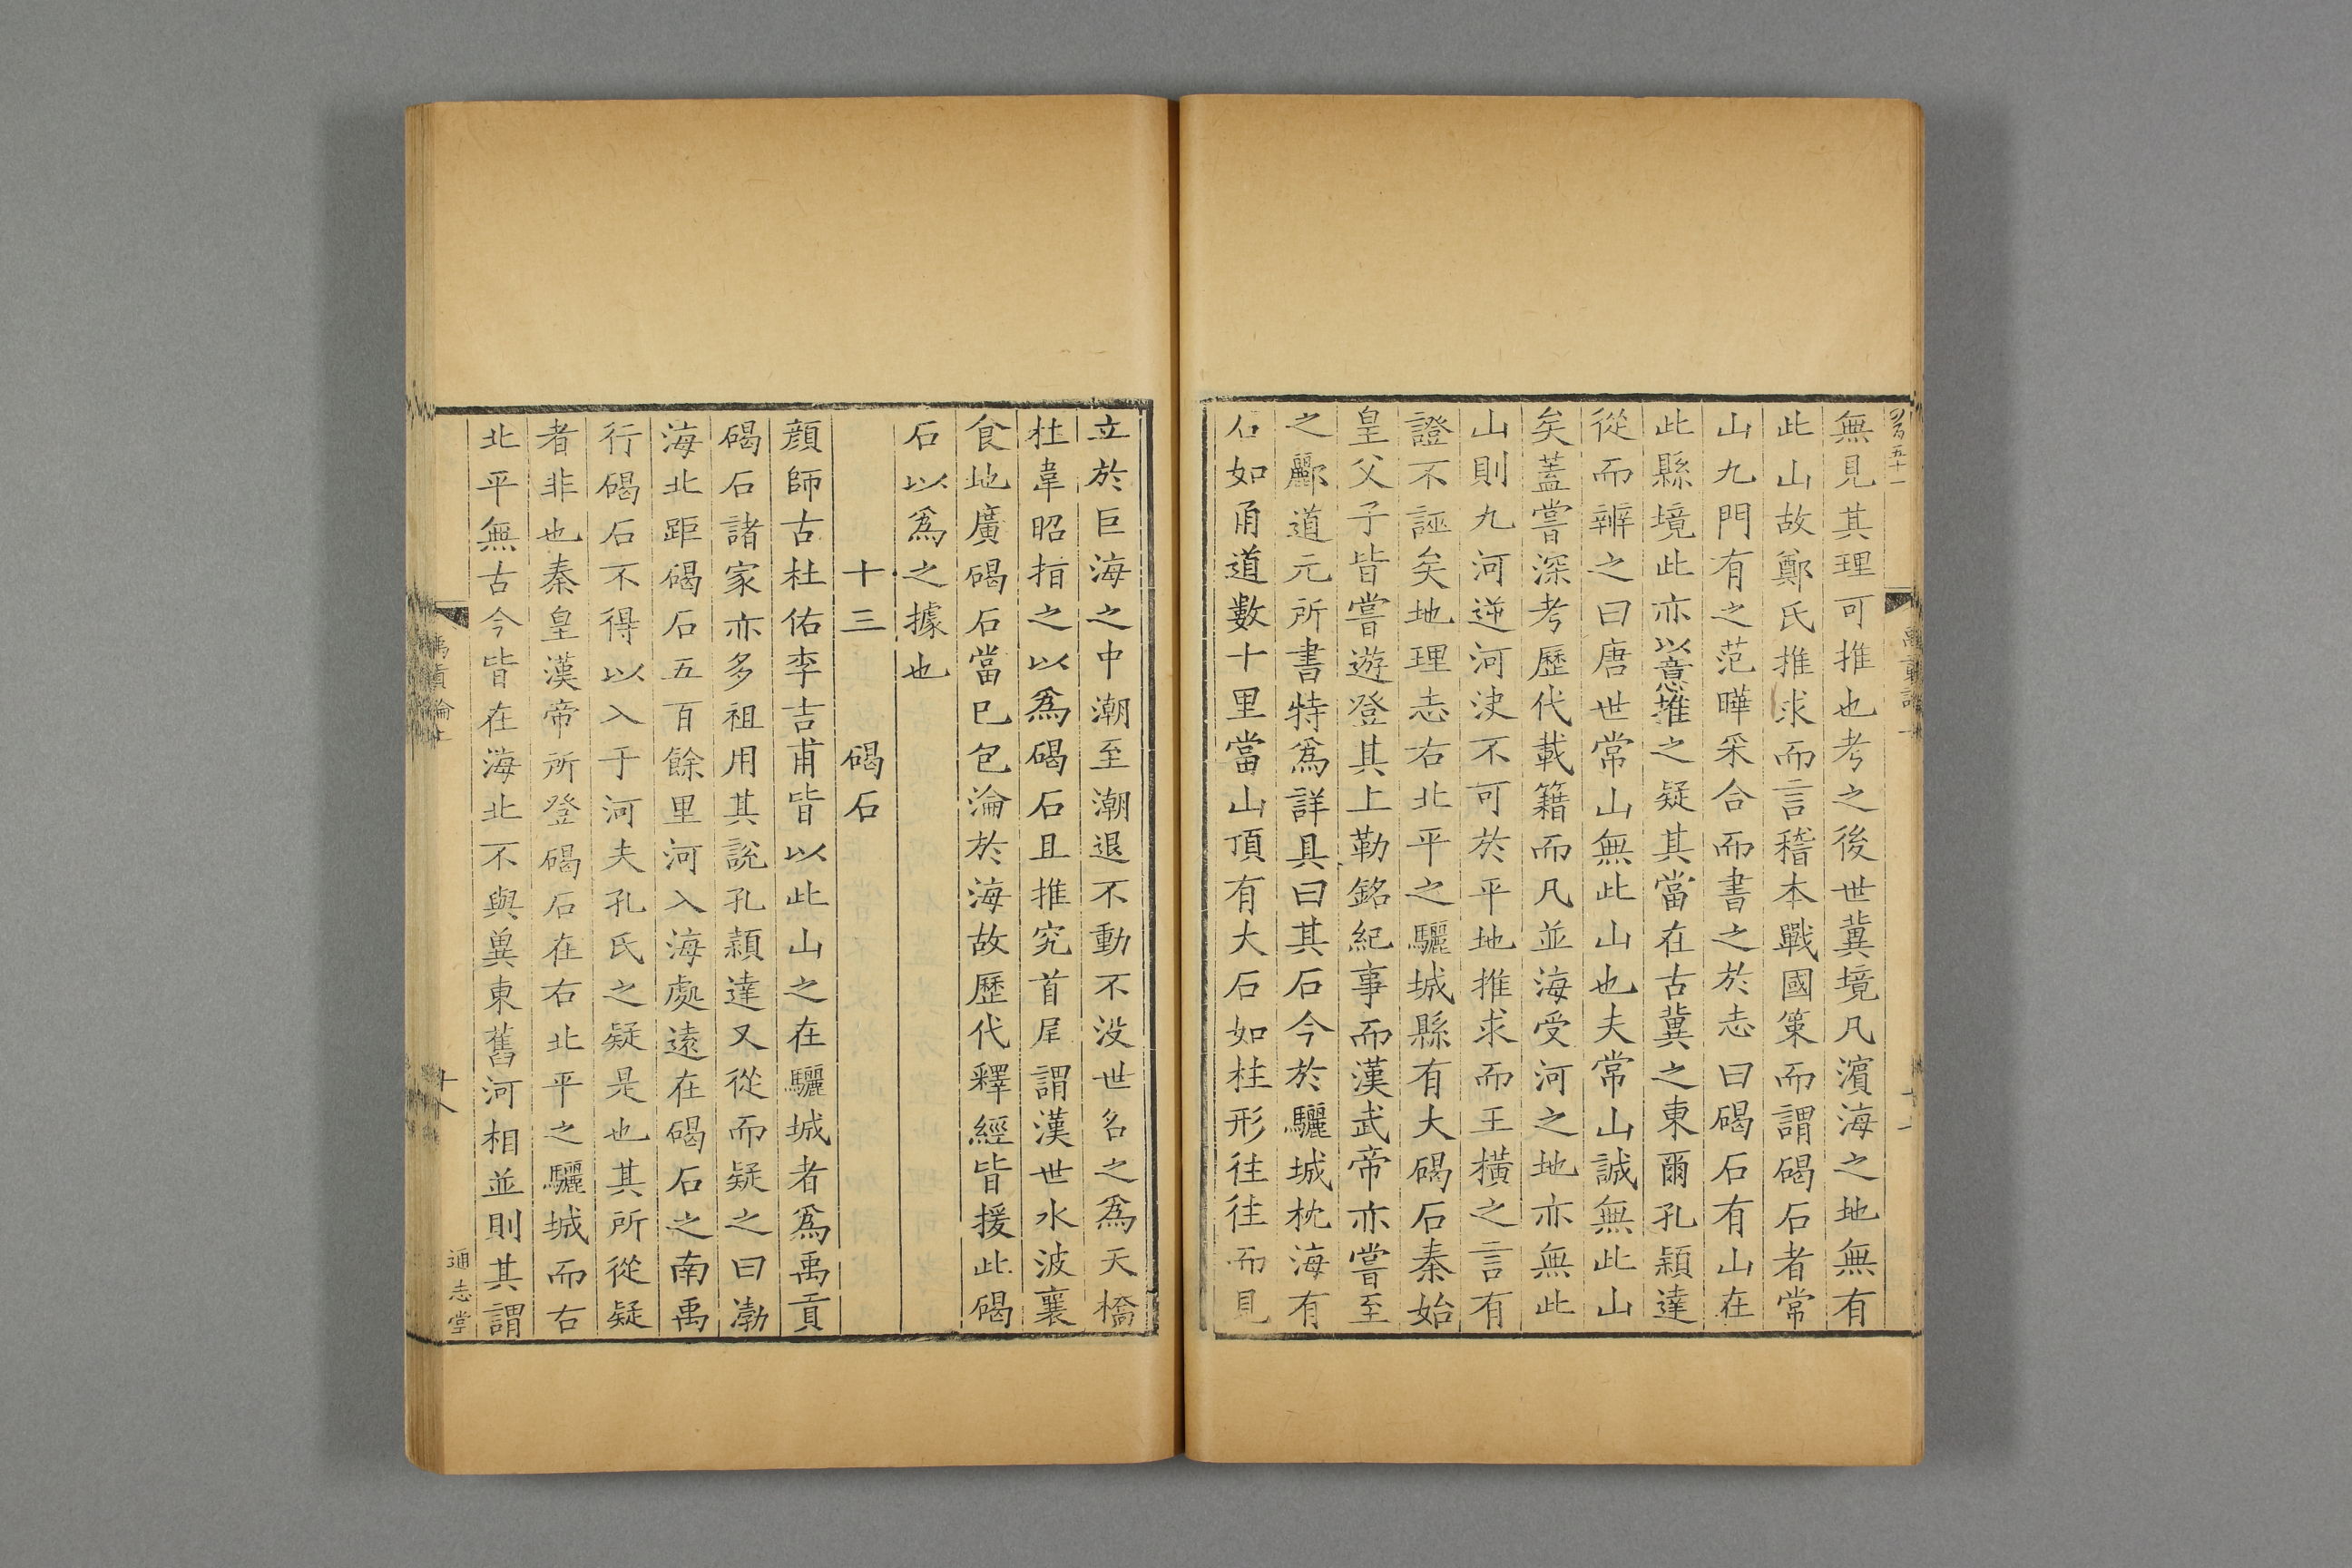 無見其理可推也考之後世冀境凡濵海之地無有
此山故鄭氏推求而言稽本戰國策而謂碣石者常
山九門有之范曄采合而書之於志曰碣石有山在
此縣境此亦以意推之疑其當在古冀之東爾孔穎達
從而辨之曰唐世常山無此山也夫常山誠無此山
矣蓋嘗深考歷代載籍而凡並海受河之地亦無此
山則九河逆河決不可於平地推求而王橫之言有
證不誣矣地理志右北平之驪城縣有大碣石秦始
皇父子皆嘗遊登其上勒銘紀事而漢武帝亦嘗至
之酈道元所書特爲詳具曰其石今於驪城枕海有
石如甬道數十里當山頂有大石如柱形往往而見
立於巨海之中潮至潮退不動不没世名之爲天橋
柱韋昭指之以爲碣石且推究首尾謂漢世水波襄
食地廣碣石當巳包淪於海故歷代釋經皆援此碣
石以爲之據也
十三　碣石
顔師古杜佑李吉甫皆以此山之在驪城者爲禹貢
碣石諸家亦多祖用其説孔穎達又從而疑之曰渤
海北距碣石五百餘里河入海處遠在碣石之南禹
行碣石不得以入于河夫孔氏之疑是也其所從疑
者非也秦皇漢帝所登碣石在右北平之驪城而右
北平無古今皆在海北不與兾東舊河相並則其謂
禹貢論上
十八
通志堂